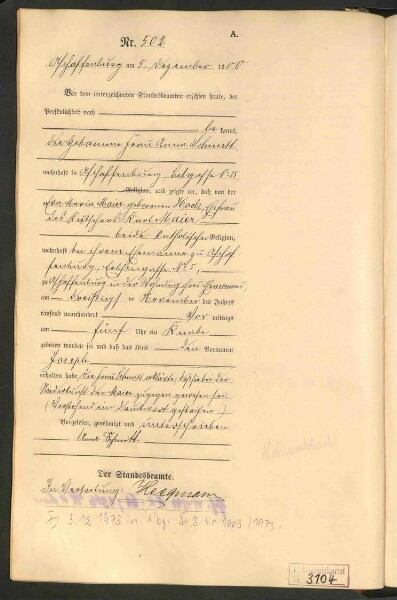 A.
Nr. 502
Aschaffenburg am 5. Dezember 1900
Vor dem unterzeichneten Standesbeamten erschien heute, der
Persönlichkeit nach
be kannt,
die Hebamme Frau Anna Schmitt
wohnhaft in Aschaffenburg
Religion, und zeigte an, daß von der
Maria Maier geborenen Hock, Ehefrau
des Kutschers Karl Maier
beide katholischer Religion,
wohnhaft bei ihrem Ehemanne zu Aschaf-
fenburg, N° 5,
zu Aschaffenburg in der Wohnung ihres Ehemannes
am dreißigsten November des Jahres
tausend neunhundert Vor mittags
um fünf Uhr ein Knabe
geboren worden sei und daß das Kind den Vornamen
Joseph
erhalten habe. Die Frau Schmitt erklärte, daß sie bei der
Niederkunft der Maier zugegen gewesen sei
(Vorstehend ein Druckwort gestrichen)
Vorgelesen, genehmigt und unterschrieben
Anna Schmitt
Der Standesbeamte.
In Vertretung: Heegmann
3.12.1973 in Abg. Nr. 1003/1973
3104